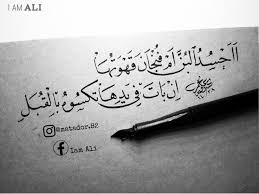 I AM ALI
أَأَحْسُدُ الْبُنَّ أَمْ فُنْجَانَ قَهْوَتِهَا
إِنْ بَاتَ فِي يَدِهَا تَكْسُوهُ بِالْقُبَلِ
@matador.82
Iam Ali